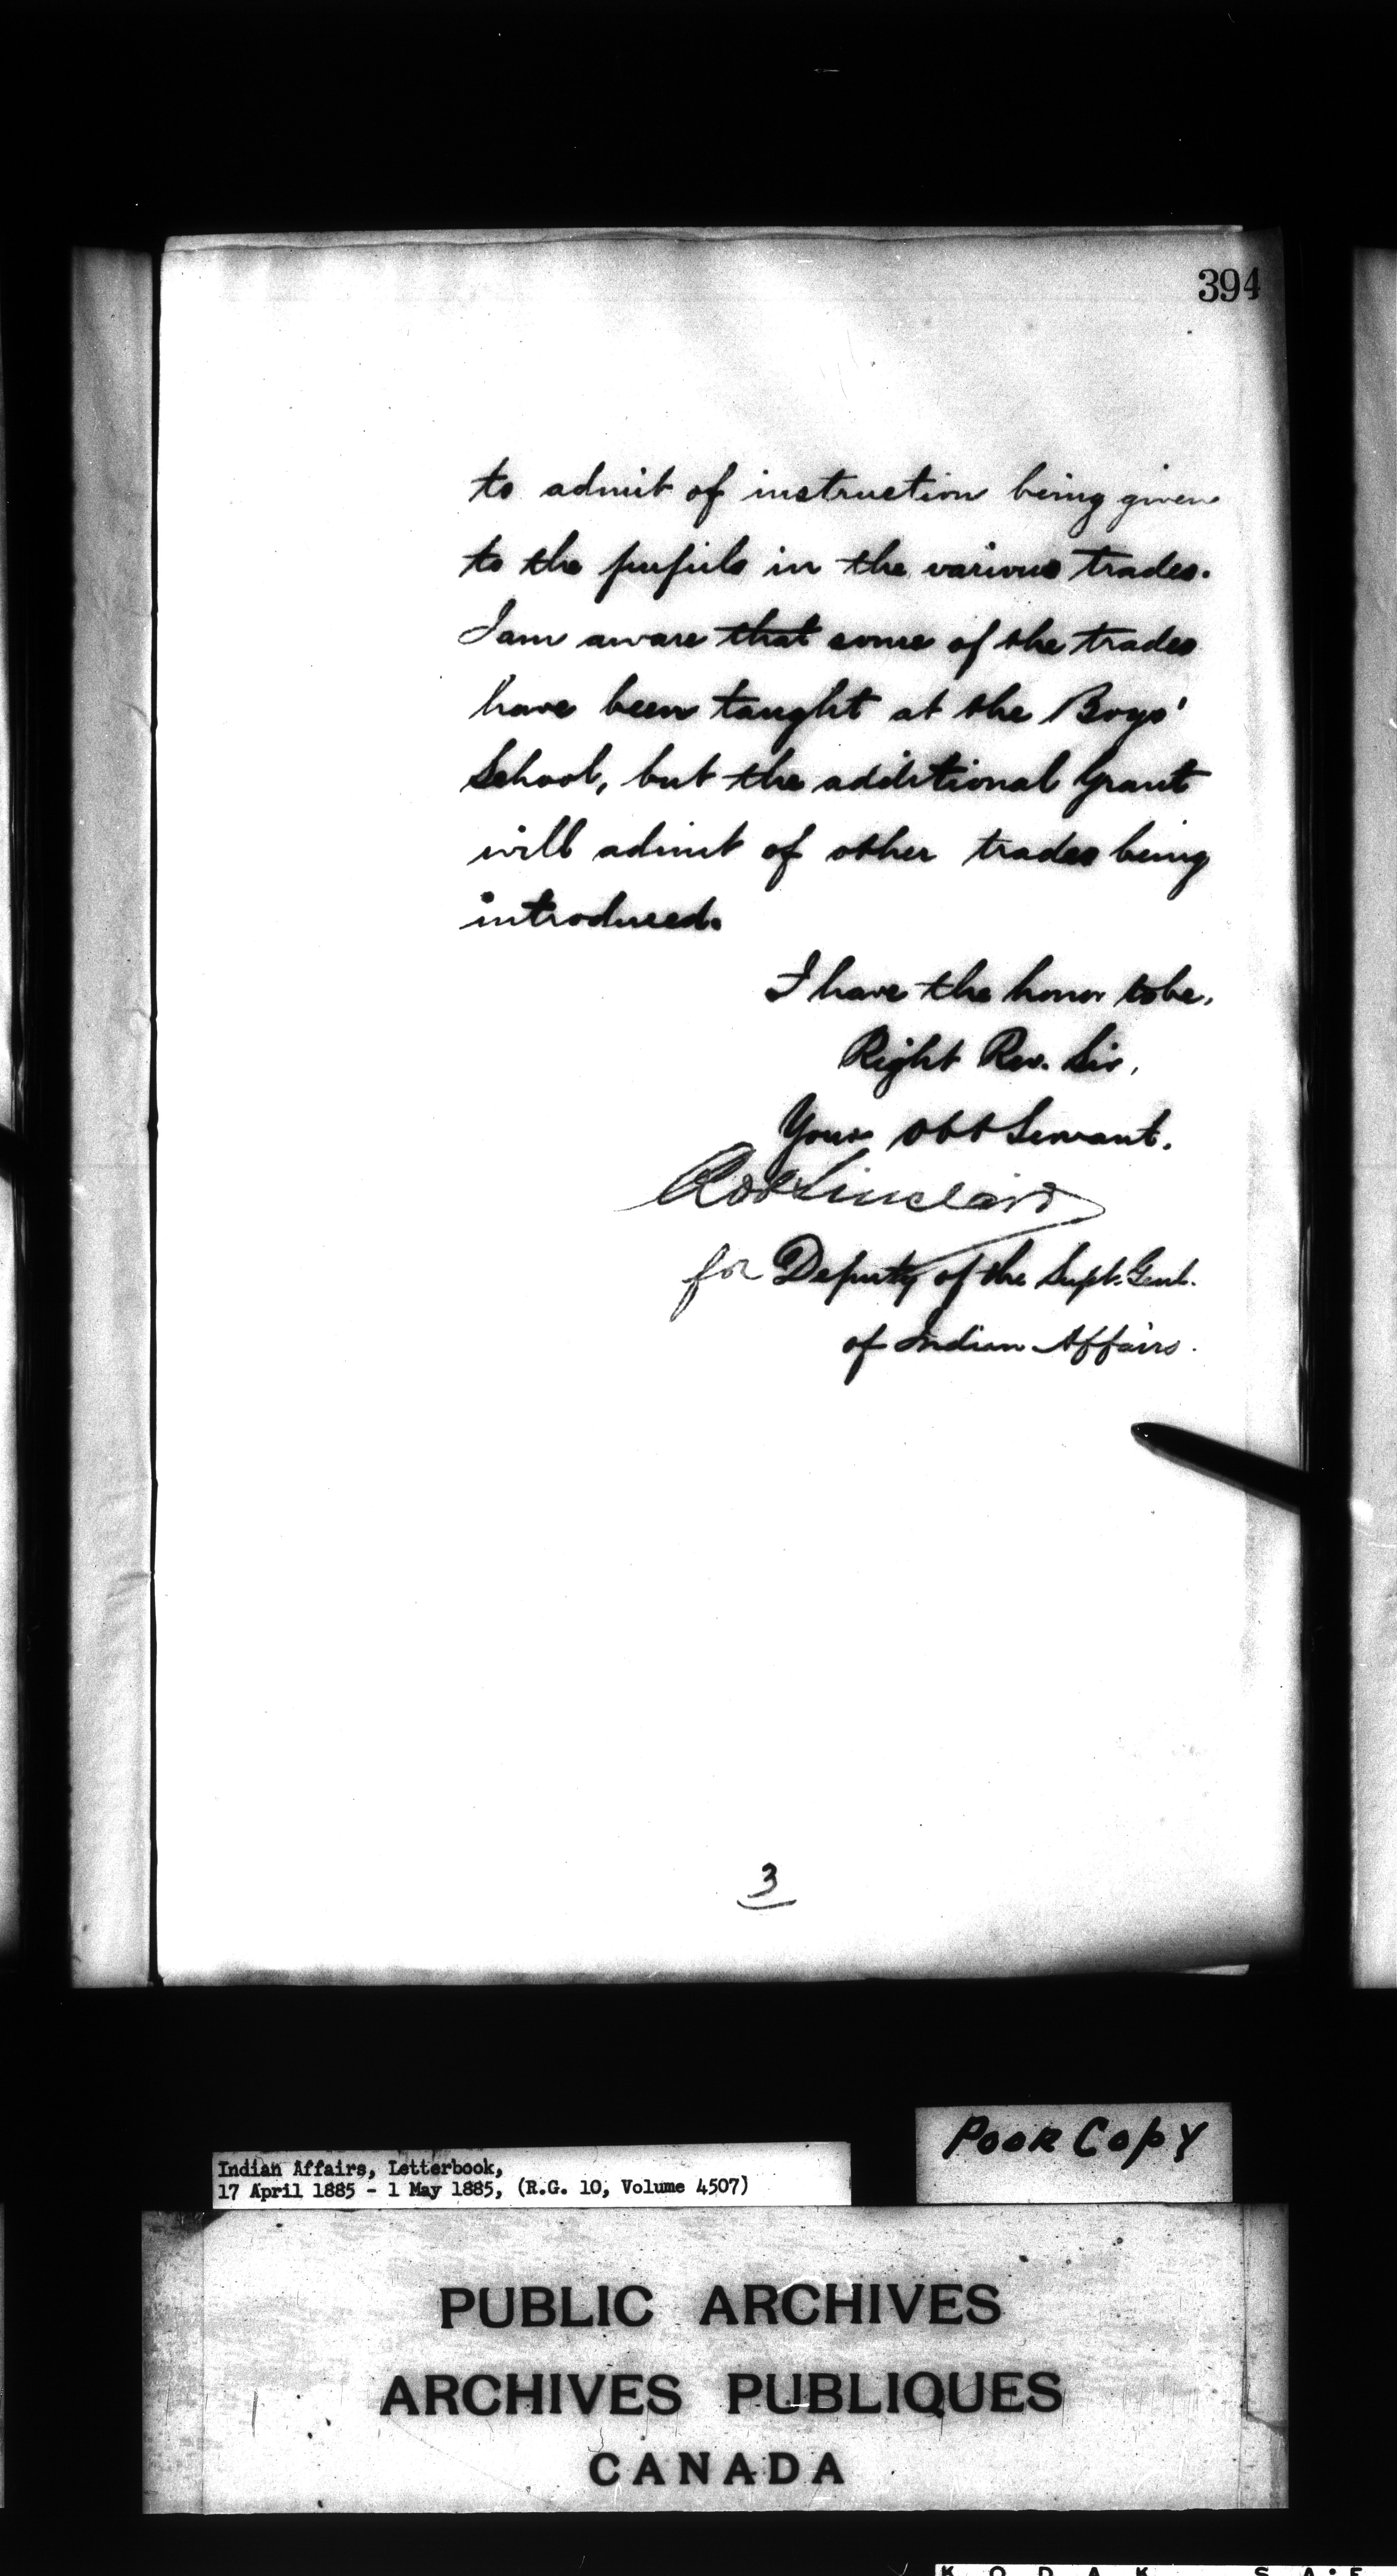 394
to admit of instruction being given
to the pupils in the various trades.
I am aware that some of the trades
have been taught at the Boys'
School, but the additional Grant
will admit of other trades being
introduced.
I have the honor to be,
Right Rev. Sir,
Your obt Servant.
Rob Sinclair
for Deputy of the Supt. Genl.
of Indian Affairs.
3
Poor Copy
Indian Affairs, Letterbook,
17 April 1885 - 1 May 1885, (R.G. 10, Volume 4507)
PUBLIC ARCHIVES
ARCHIVES PUBLIQUES
CANADA
KODAK